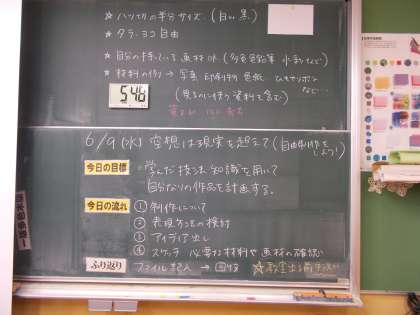 ★ ハツ切の半分サイズ。(白い 黒)
★ タテ・ヨコ 自由
★ 自分の持っている画材 OK (多色色鉛筆 水彩 など)
★ 材料の例 → 写真 印刷物 色紙 ひもやリボン
など…
(見るのに使う資料も含む)
546
6/9(水) 空想は現実を超えて (自由制作をしよう!)
今日の目標 学んだ技法、知識を用いて
自分なりの作品を計画する。
今日の流れ ① 制作について
② 表現方法の検討
③ アイディア出し
④ スケッチ 必要な材料や画材の確認
ふり返り ファイル記入 → 回収 ☆教室出る前手洗い